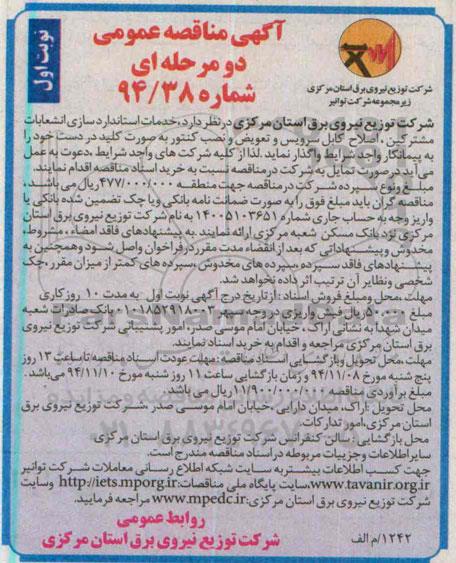 نوبت اول
آگهی مناقصه عمومی
دو مرحله ای
شماره ۹۴/۳۸
شرکت توزیع نیروی برق استان مرکزی
زیر مجموعه شرکت توانیر
شرکت توزیع نیروی برق استان مرکزی در نظر دارد، خدمات استاندارد سازی انشعابات
مشترکین، اصلاح کابل سرویس و تعویض و نصب کنتور به صورت کلید در دست خود را
به پیمانکار واجد شرایط واگذار نماید. لذا از کلیه شرکت های واجد شرایط، دعوت به عمل
می آید در صورت تمایل به شرکت در مناقصه نسبت به خرید اسناد مناقصه اقدام نمایند.
مبلغ و نوع سپرده شرکت در مناقصه جهت منطقه ۴۷۷/۰۰۰/۰۰۰ ریال می باشد،
مناقصه گران باید مبلغ فوق را به صورت ضمانت نامه بانکی ویا چک تضمین شده بانکی یا
واریز وجه به حساب جاری شماره ۱۴۰۰۵۱۰۳۶۵۱ به نام شرکت توزیع نیروی برق استان
مرکزی نزد بانک مسکن شعبه مرکزی ارائه نمایند به پیشنهادهای فاقد امضاء، مشروط،
مخدوش و پیشنهاداتی که بعد از انقضاء مدت مقرر در فراخوان واصل شود و همچنین به
پیشنهادهای فاقد سپرده، سپرده های مخدوش، سپرده های کمتر از میزان مقرر، چک
شخصی و نظایر آن ترتیب اثر داده نخواهد شد.
مهلت، محل و مبلغ فروش اسناد: از تاریخ درج آگهی نوبت اول به مدت ۱۰ روز کاری
مبلغ ریال فیش واریزی در وجه سپهر بانک صادرات شعبه
میدان شهدا به نشانی اراک، خیابان امام موسی صدر، امور پشتیبانی شرکت توزیع نیروی
برق استان مرکزی، مراجعه و اقدام به خرید اسناد نمایند.
مهلت، محل تحویل و بازگشایی اسناد مناقصه: مهلت عودت اسناد مناقصه تا ساعت ۱۳ روز
پنج شنبه مورخ ۹۴/۱۱/۰۸ و زمان بازگشایی ساعت ۱۱ روز شنبه مورخ ۹۴/۱۱/۱۰ می باشد.
مبلغ برآوردی مناقصه ۱۱/۹۰۰/۰۰۰/۰۰۰ ریال می باشد.
محل تحویل: اراک، میدان دارایی، خیابان امام موسی صدر، شرکت توزیع نیروی برق
استان مرکزی، امور تدارکات.
محل بازگشایی: سالن کنفرانس شرکت توزیع نیروی برق استان مرکزی
سایر اطلاعات و جزییات مربوطه در اسناد مناقصه مندرج است.
جهت کسب اطلاعات بیشتر به سایت شبکه اطلاع رسانی معاملات شرکت توانیر
www.tavanir.org.ir، سایت پایگاه ملی مناقصات: http://iets.mporg.ir و سایت
شرکت توزیع نیروی برق استان مرکزی: www.mpedc.ir مراجعه فرمایید.
روابط عمومی
شرکت توزیع نیروی برق استان مرکزی
۱۲۴۲/م الف